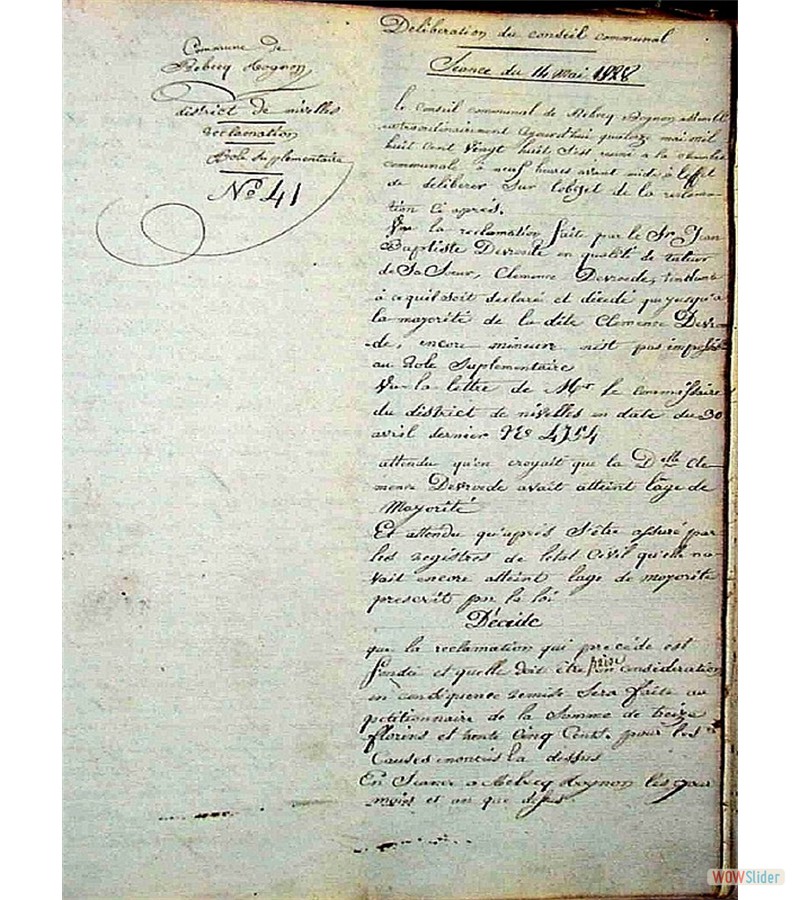 Commune de
Rebecq Rognon
district de nivelles
reclamation
Role Suplementaire
No 41
Deliberation du conseil communal
Séance du 14 mai 1828
le Conseil communal de Rebecq Rognon assemblé
extraordinairement aujourd'hui quatorze mai mil
huit cent vingt huit s'est reuni a la chambre
communale à neuf heures avant midi à l'effet
de deliberer sur l'objet de la reclama-
tion ci après.
Vu la reclamation faite par le Sr Jean
Baptiste Devroede en qualité de tuteur
de Sa Soeur, Clemence Devroede, tendante
à ce quil soit declaré et décidé que jusqu'a
la majorité de la dite Clemence Devroe-
-de, encore mineure n'est pas imposable
au Role Suplementaire
Vu la lettre de Mr le commissaire
du district de nivelles en date du 30
avril dernier No 4754
attendu qu'on croyait que la Delle Cle-
mence Devroede avait atteint l'age de
Mayorité
Et attendu qu'après s'être assuré par
les registres de letat Civil qu'elle na-
vait encore atteint lage de mayorité
prescrit par la loi
Décide
que la reclamation qui precède est
fondée et quelle doit être prise en consideration
en consequence remise sera faite au
petitionnaire de la Somme de treize
florins et trente Cinq Cents. pour les
Causes enoncés la dessus
En Seance a Rebecq Rognon les jour
mois et an que dessus
WOWSlider